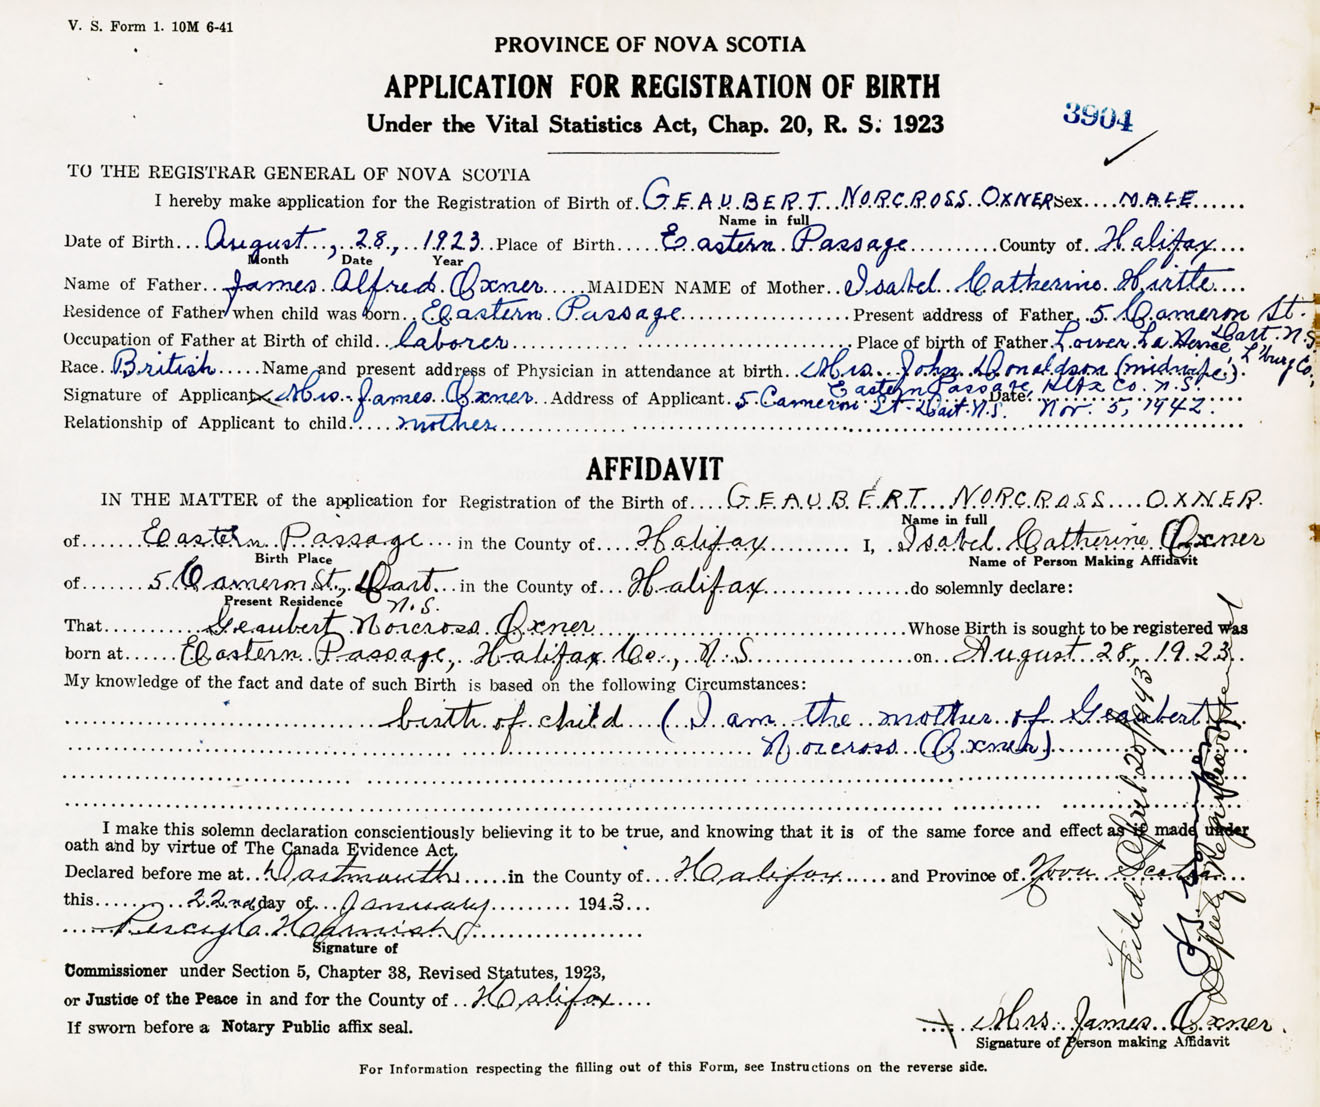 V. S. Form 1. 10M 6-41
PROVINCE OF NOVA SCOTIA
APPLICATION FOR REGISTRATION OF BIRTH
Under the Vital Statistics Act, Chap. 20, R. S. 1923
3904
TO THE REGISTRAR GENERAL OF NOVA SCOTIA
I hereby make application for the Registration of Birth of GEAUBERT NORCROSS OXNER Sex MALE
Name in full
Date of Birth August, 28, 1923 Place of Birth Eastern Passage County of Halifax
Month Date Year
Name of Father James Alfred Oxner MAIDEN NAME of Mother Isabel Catherine Hirtle
Residence of Father when child was born Eastern Passage Present address of Father 5 Cameron St. Dart. N.S
Occupation of Father at Birth of child laborer Place of birth of Father Lower La Have L'burg Co.
Race British Name and present address of Physician in attendance at birth Mrs. John Donaldson (midwife) Eastern Passage, Hlfx Co. N.S.
Signature of Applicant x Mrs. James Oxner Address of Applicant 5 Cameron St. Dart. N.S. Date Nov. 5, 1942.
Relationship of Applicant to child mother
AFFIDAVIT
IN THE MATTER of the application for Registration of the Birth of GEAUBERT NORCROSS OXNER
Name in full
of Eastern Passage in the County of Halifax I, Isabel Catherine Oxner
Birth Place Name of Person Making Affidavit
of 5 Cameron St., Dart. N.S. in the County of Halifax do solemnly declare:
Present Residence
That Geaubert Norcross Oxner Whose Birth is sought to be registered was
born at Eastern Passage, Halifax Co., N.S on August 28, 1923
My knowledge of the fact and date of such Birth is based on the following Circumstances:
birth of child (I am the mother of Geaubert
Norcross Oxner)
I make this solemn declaration conscientiously believing it to be true, and knowing that it is of the same force and effect as if made under
oath and by virtue of The Canada Evidence Act.
Declared before me at Dartmouth in the County of Halifax and Province of Nova Scotia
this 22nd day of January 1943
Signature of
Commissioner under Section 5, Chapter 38, Revised Statutes, 1923,
or Justice of the Peace in and for the County of Halifax
If sworn before a Notary Public affix seal.
x Mrs. James Oxner
Signature of Person making Affidavit
Filed April 20/1943
Deputy Registrar General
For Information respecting the filling out of this Form, see Instructions on the reverse side.